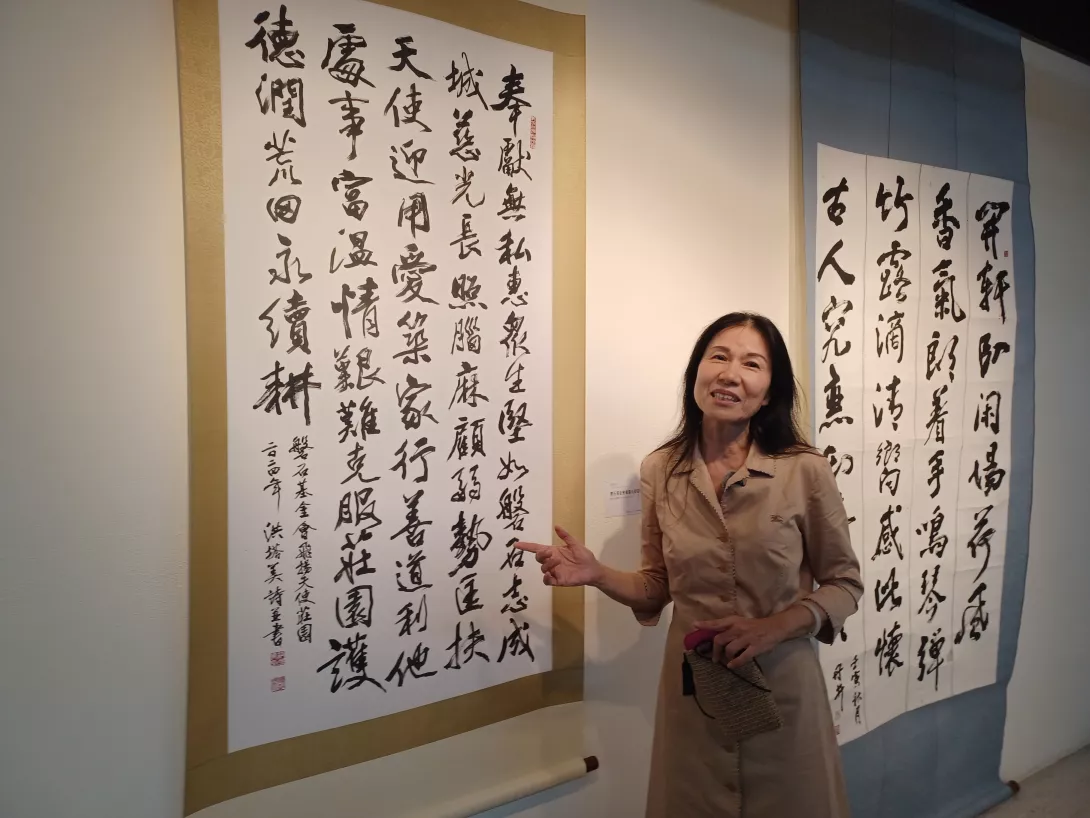 奉獻無私惠眾生堅如磐石志成
城慈光長照腦麻顧弱勢匡扶
天使迎用愛築家行善道利他
處事富溫情艱難克服莊園護
德潤荒田永續耕
磐石基金會飛揚天使莊園
二〇二四年 洪塔美詩並書
開軒卧閑荷風
香氣着手鳴琴彈
竹露滴清響感此懷
古人
壬寅秋月